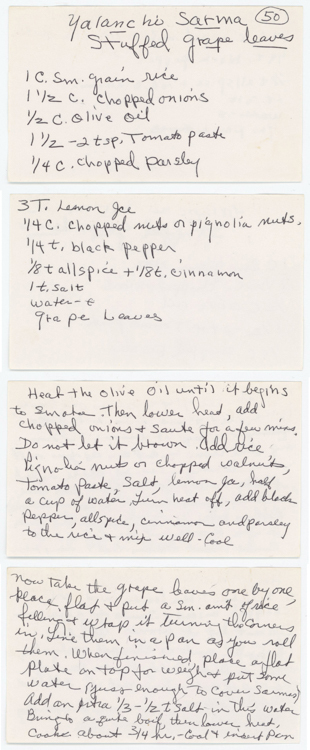 Yalanchi Sarma (50)
Stuffed grape leaves
1 C. Sm. grain rice
1 1/2 C. chopped onions
1/2 C. Olive Oil
1 1/2 - 2 tsp. Tomato paste
1/4 C. chopped parsley
3 T. Lemon Jce
1/4 C. chopped nuts or pignolia nuts.
1/4 t. black pepper
1/8 t allspice + 1/8 t. cinnamon
1 t. salt
water - t
grape Leaves
Heat the olive oil until it begins
to smoke. Then lower heat, add
chopped onions & saute for a few mins.
Do not let it brown. Add rice
Pignolia nuts or chopped walnuts,
tomato paste, salt, lemon jce, half
a cup of water. Turn heat off, add black
pepper, allspice, cinnamon and parsley
to the rice & mix well - Cool
Now take the grape leaves one by one,
place flat & put a sm. amt of rice
filling & wrap it turning the corners
in. Line them in a pan as you roll
them. When finished, place a flat
plate on top for weight & put some
water (just enough to cover Sarmas)
Add an extra 1/3 - 1/2 t salt in the water
Bring to a boil, then lower heat,
Cook about 3/4 hr. - Cool & invert pan